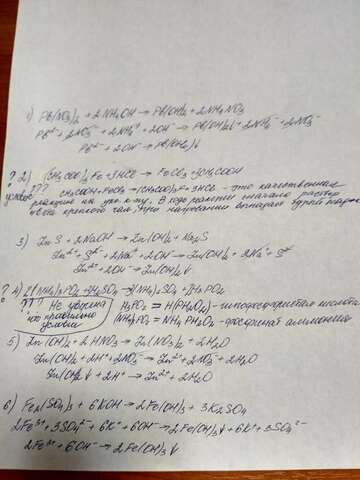 1) Pb(NO3)2 + 2NH4OH → Pb(OH)2 + 2NH4NO3
Pb2+ + 2NO3- + 2NH4+ + 2OH- → Pb(OH)2↓ + 2NH4+ + 2NO3-
Pb2+ + 2OH- → Pb(OH)2↓
? 2) (CH3COO)3Fe + 3HCl → FeCl3 + 3CH3COOH
??? CH3COOH + FeCl3 → (CH3COO)3Fe + 3HCl - это качественная
реакция на укс. к-ту. В ходе реакции сначала раствор
цвета крепкого чая, при нагревании выпадает бурый
3) ZnS + 2NaOH → Zn(OH)2 + Na2S
Zn2+ + S2- + 2Na+ + 2OH- → Zn(OH)2↓ + 2Na+ + S2-
Zn2+ + 2OH- → Zn(OH)2↓
? 4) 2(NH4)H2PO2 + H2SO4 → (NH4)2SO4 + 2H3PO2
??? Не уверена что правильно условие
H3PO2 = H(PH2O2) - гипофосфористая кислота
(NH4)H2PO2 = NH4PH2O2 - фосфинат аммония
5) Zn(OH)2 + 2HNO3 → Zn(NO3)2 + 2H2O
Zn(OH)2 + 2H+ + 2NO3- → Zn2+ + 2NO3- + 2H2O
Zn(OH)2↓ + 2H+ → Zn2+ + 2H2O
6) Fe2(SO4)3 + 6KOH → 2Fe(OH)3 + 3K2SO4
2Fe3+ + 3SO42- + 6K+ + 6OH- → 2Fe(OH)3↓ + 6K+ + 3SO42-
2Fe3+ + 6OH- → 2Fe(OH)3↓